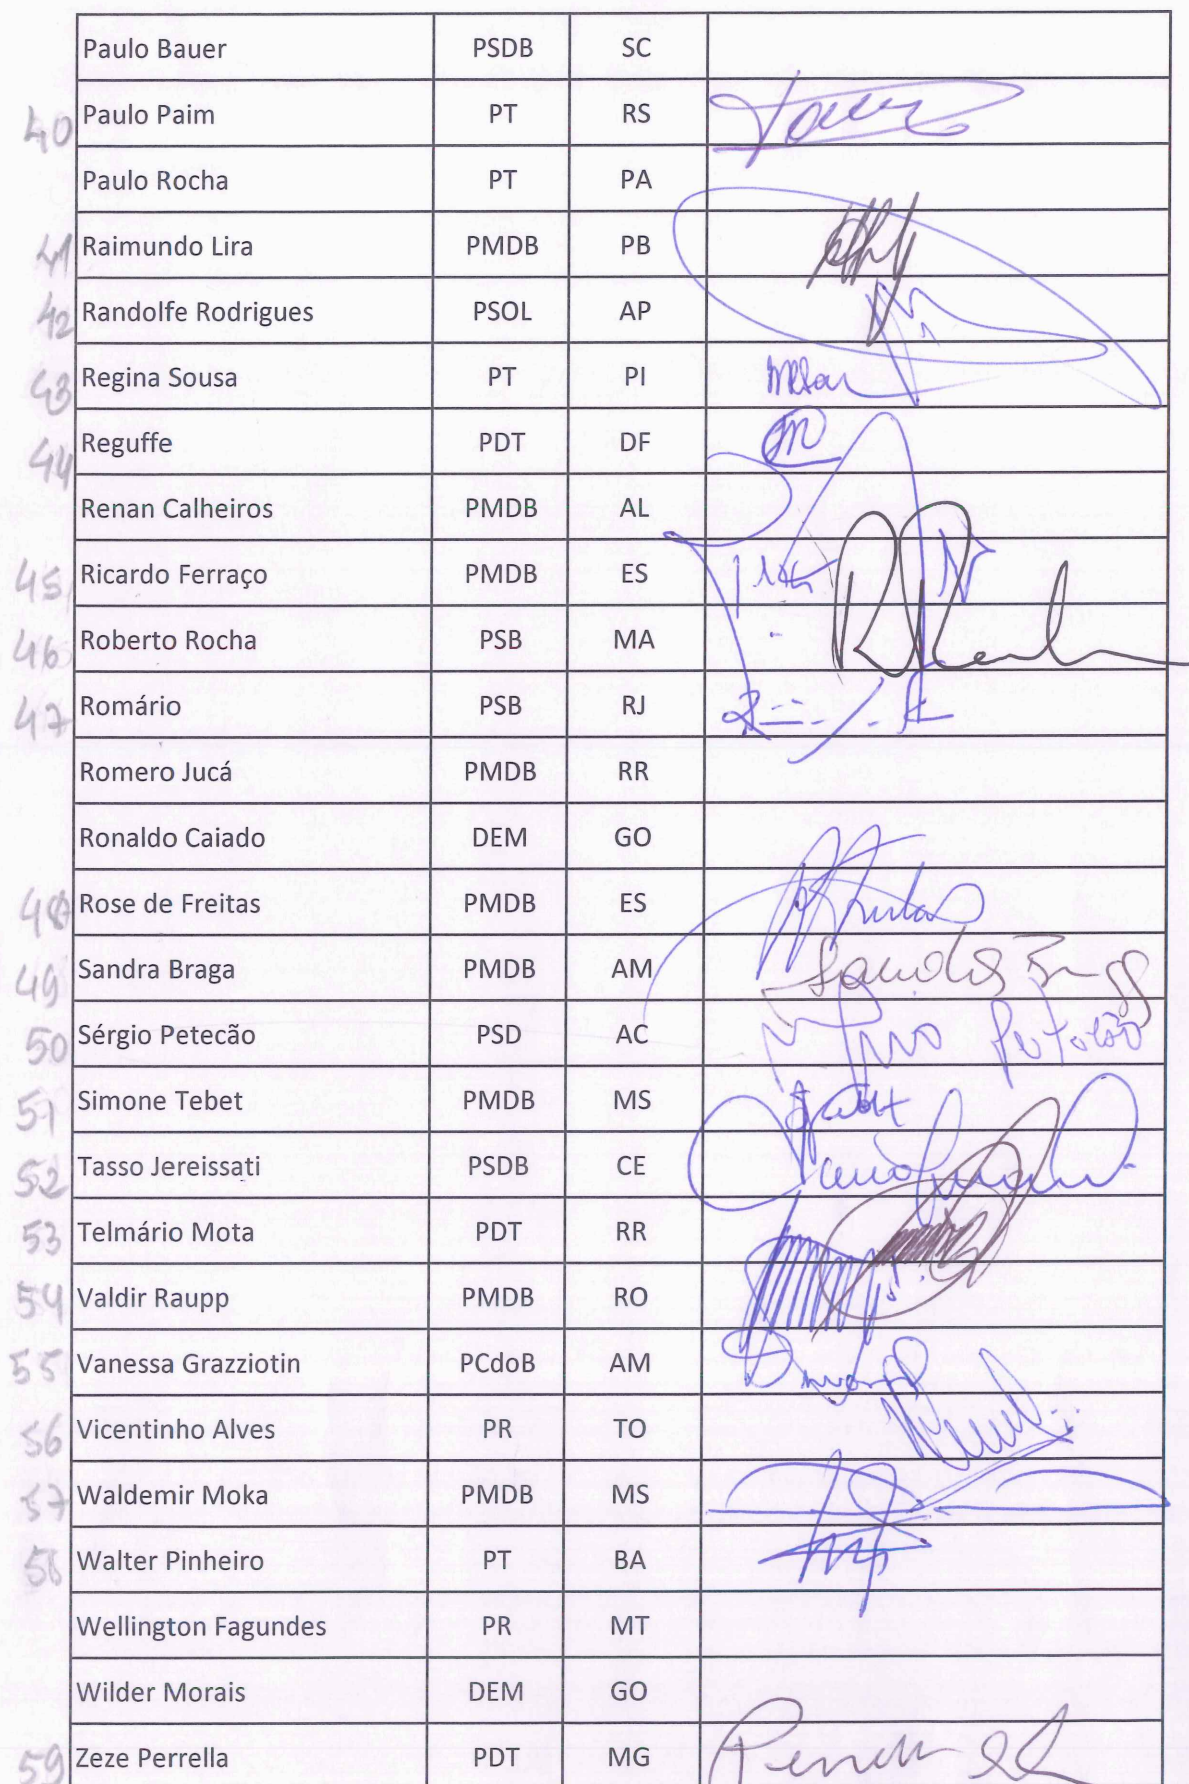 Paulo Bauer PSDB SC
40 Paulo Paim PT RS
Paulo Rocha PT PA
41 Raimundo Lira PMDB PB
42 Randolfe Rodrigues PSOL AP
43 Regina Sousa PT PI
44 Reguffe PDT DF
Renan Calheiros PMDB AL
45 Ricardo Ferraço PMDB ES
46 Roberto Rocha PSB MA
47 Romário PSB RJ
Romero Jucá PMDB RR
Ronaldo Caiado DEM GO
48 Rose de Freitas PMDB ES
49 Sandra Braga PMDB AM Sandra Braga
50 Sérgio Petecão PSD AC Petecão
51 Simone Tebet PMDB MS
52 Tasso Jereissati PSDB CE
53 Telmário Mota PDT RR
54 Valdir Raupp PMDB RO
55 Vanessa Grazziotin PCdoB AM
56 Vicentinho Alves PR TO
57 Waldemir Moka PMDB MS
58 Walter Pinheiro PT BA
Wellington Fagundes PR MT
Wilder Morais DEM GO
59 Zeze Perrella PDT MG